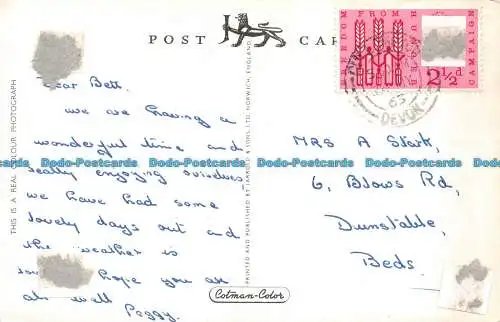 POST CAR
FREEDOM FROM HUNGER CAMPAIGN
2½d
63
DEVON
THIS IS A REAL COLOUR PHOTOGRAPH
PRINTED AND PUBLISHED BY JARROLD & SONS LTD. NORWICH, ENGLAND
Dear Bett.
we are having a
wonderful time and
really enjoying ourselves
we have had some
lovely days out and
the weather is
hope you are
all well
Peggy.
MRS A Stark,
6, Blows Rd,
Dunstable,
Beds.
Cotman-Color
Dodo-Postcards Dodo-Postcards Dodo-Postcards Dodo-Postcards